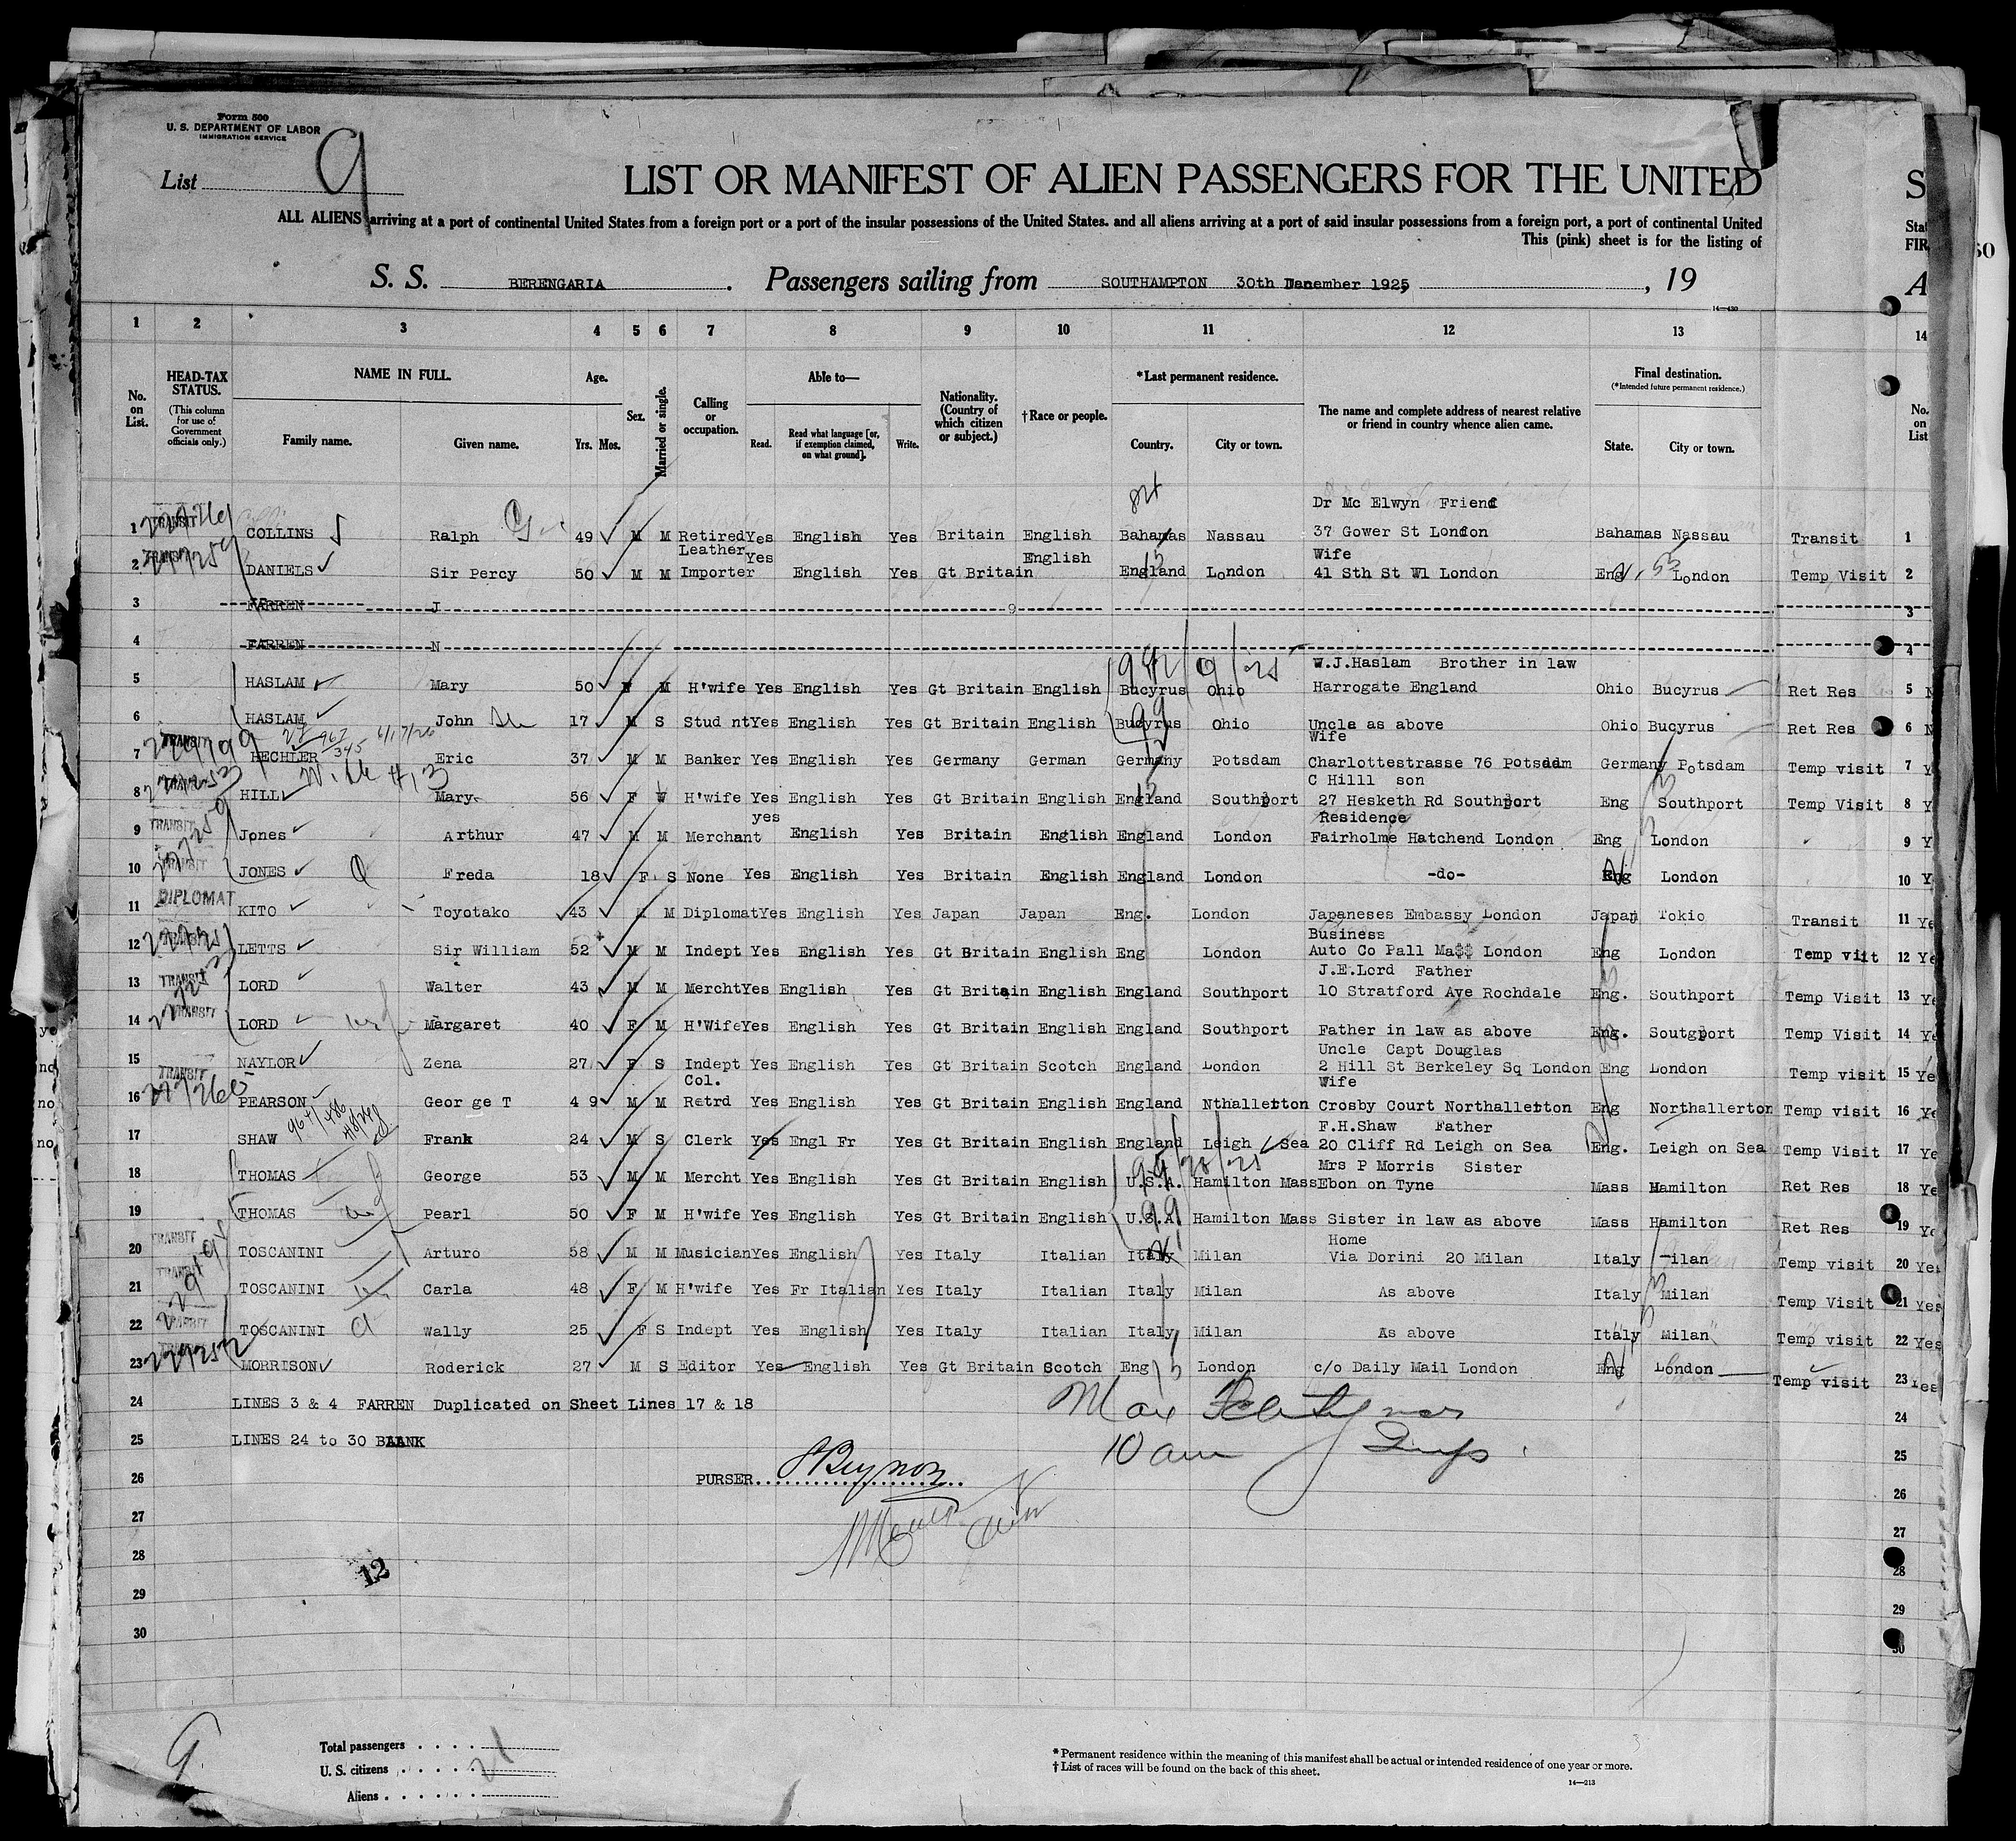 Form 500
U. S. DEPARTMENT OF LABOR
IMMIGRATION SERVICE
List 9
LIST OR MANIFEST OF ALIEN PASSENGERS FOR THE UNITED
S
ALL ALIENS arriving at a port of continental United States from a foreign port or a port of the insular possessions of the United States. and all aliens arriving at a port of said insular possessions from a foreign port, a port of continental United
This (pink) sheet is for the listing of
S. S. BERENGARIA. Passengers sailing from SOUTHAMPTON 30th December 1925, 19
14—430
1 2 3 4 5 6 7 8 9 10 11 12 13 14
No. on List.
HEAD-TAX STATUS.
(This column for use of Government officials only.)
NAME IN FULL.
Family name. Given name.
Age.
Yrs. Mos.
Sex.
Married or single.
Calling or occupation.
Able to—
Read. Read what language [or, if exemption claimed, on what ground]. Write.
Nationality. (Country of which citizen or subject.)
†Race or people.
*Last permanent residence.
Country. City or town.
The name and complete address of nearest relative or friend in country whence alien came.
Final destination.
(*Intended future permanent residence.)
State. City or town.
No. on List
Dr Mc Elwyn Friend
1 TRANSIT COLLINS Ralph 49 M M Retired Yes English Yes Britain English Bahamas Nassau 37 Gower St London Bahamas Nassau Transit 1
Leather Yes English Wife
2 TRANSIT DANIELS Sir Percy 50 M M Importer English Yes Gt Britain England London 41 Sth St W1 London Eng London Temp Visit 2
3 FARREN J 3
4 FARREN N 4
W.J.Haslam Brother in law
5 HASLAM Mary 50 F M H'wife Yes English Yes Gt Britain English Bucyrus Ohio Harrogate England Ohio Bucyrus Ret Res 5
6 HASLAM John 17 M S Stud nt Yes English Yes Gt Britain English Bucyrus Ohio Uncle as above Ohio Bucyrus Ret Res 6
Wife
7 TRANSIT HECHLER Eric 37 M M Banker Yes English Yes Germany German Germany Potsdam Charlottestrasse 76 Potsdam Germany Potsdam Temp visit 7
C Hilll son
8 HILL Mary 56 F W H'wife Yes English Yes Gt Britain English England Southport 27 Hesketh Rd Southport Eng Southport Temp Visit 8
yes Residence
9 TRANSIT Jones Arthur 47 M M Merchant English Yes Britain English England London Fairholme Hatchend London Eng London 9
10 TRANSIT JONES Freda 18 F S None Yes English Yes Britain English England London -do- Eng London 10
11 DIPLOMAT KITO Toyotako 43 M M Diplomat Yes English Yes Japan Japan Eng. London Japaneses Embassy London Japan Tokio Transit 11
Business
12 LETTS Sir William 52 M M Indept Yes English Yes Gt Britain English Eng London Auto Co Pall Ma$$ London Eng London Temp viit 12
J.E.Lord Father
13 TRANSIT LORD Walter 43 M M Mercht Yes English Yes Gt Britain English England Southport 10 Stratford Ave Rochdale Eng. Southport Temp Visit 13
14 TRANSIT LORD Margaret 40 F M H'Wife Yes English Yes Gt Britain English England Southport Father in law as above Eng. Soutgport Temp Visit 14
Uncle Capt Douglas
15 NAYLOR Zena 27 F S Indept Yes English Yes Gt Britain Scotch England London 2 Hill St Berkeley Sq London Eng London Temp visit 15
TRANSIT Col. Wife
16 PEARSON Geor ge T 4 9 M M Retrd Yes English Yes Gt Britain English England Nthallerton Crosby Court Northallerton Eng Northallerton Temp visit 16
F.H.Shaw Father
17 SHAW Frank 24 M S Clerk Yes Engl Fr Yes Gt Britain English England Leigh Sea 20 Cliff Rd Leigh on Sea Eng. Leigh on Sea Temp Visit 17
Mrs P Morris Sister
18 THOMAS George 53 M M Mercht Yes English Yes Gt Britain English U.S.A. Hamilton Mass Ebon on Tyne Mass Hamilton Ret Res 18
19 THOMAS Pearl 50 F M H'wife Yes English Yes Gt Britain English U.S.A Hamilton Mass Sister in law as above Mass Hamilton Ret Res 19
Home
20 TRANSIT TOSCANINI Arturo 58 M M Musician Yes English Yes Italy Italian Italy Milan Via Dorini 20 Milan Italy -ilan Temp visit 20
21 TOSCANINI Carla 48 F M H'wife Yes Fr Italian Yes Italy Italian Italy Milan As above Italy Milan Temp Visit 21
22 TOSCANINI Wally 25 F S Indept Yes English Yes Italy Italian Italy Milan As above Italy Milan Temp visit 22
23 MORRISON Roderick 27 M S Editor Yes English Yes Gt Britain Scotch Eng London c/o Daily Mail London Eng London Temp visit 23
24 LINES 3 & 4 FARREN Duplicated on Sheet Lines 17 & 18 24
25 LINES 24 to 30 BLANK 25
10 am
26 PURSER 26
27 27
28 12 28
29 29
30 30
9
Total passengers
U. S. citizens 21
Aliens
*Permanent residence within the meaning of this manifest shall be actual or intended residence of one year or more.
†List of races will be found on the back of this sheet.
14—213